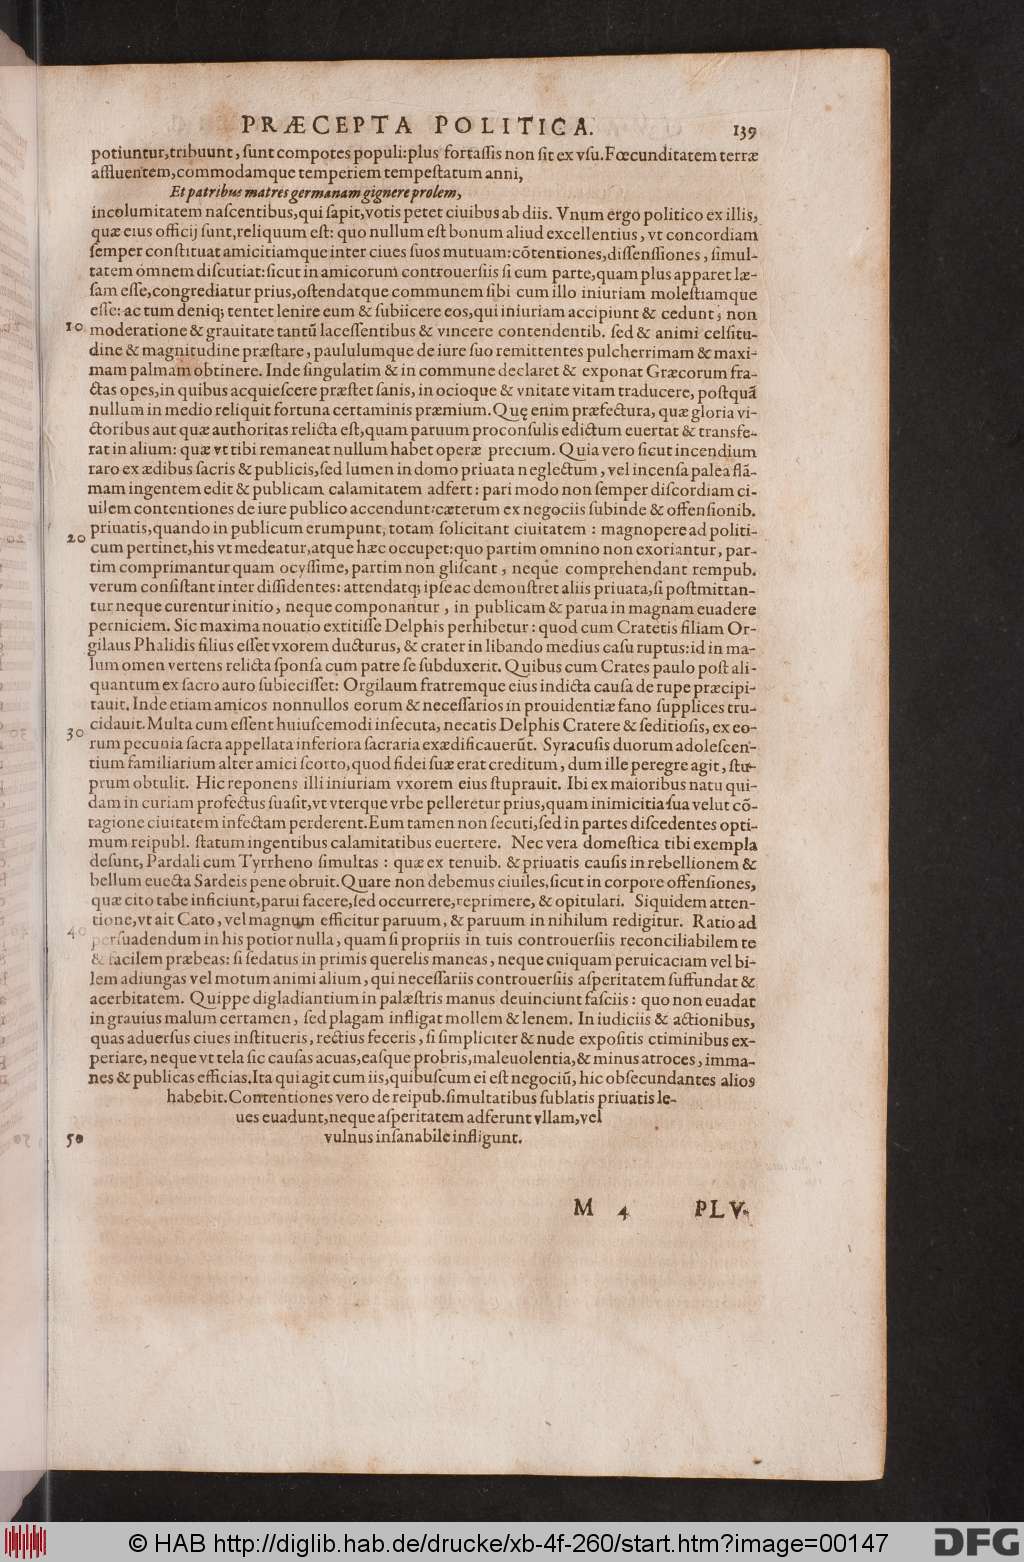 PRÆCEPTA POLITICA. 139
potiuntur,tribuunt, ſunt compotes populi:plus fortaſſis non ſit ex vſu.Fœcunditatem terræ
affluentem,commodamque temperiem tempeſtatum anni,
Et patribus matres germanam gignere prolem,
incolumitatem naſcentibus,qui ſapit,votis petet ciuibus ab diis. Vnum ergo politico ex illis,
quæ eius officij ſunt,reliquum eſt: quo nullum eſt bonum aliud excellentius, vt concordiam
ſemper conſtituat amicitiamque inter ciues ſuos mutuam:cõtentiones,diſſenſſiones, ſimul-
tatem omnem diſcutiat:ſicut in amicorum controuerſiis ſi cum parte,quam plus apparet læ-
ſam eſſe,congrediatur prius,oſtendatque communem ſibi cum illo iniuriam moleſtiamque
eſſe: ac tum deniq; tentet lenire eum & ſubiicere eos,qui iniuriam accipiunt & cedunt, non
10 moderatione & grauitate tantũ laceſſentibus & vincere contendentib. ſed & animi celſitu-
dine & magnitudine præſtare, paululumque de iure ſuo remittentes pulcherrimam & maxi-
mam palmam obtinere. Inde ſingulatim & in commune declaret & exponat Græcorum fra-
ctas opes,in quibus acquieſcere præſtet ſanis, in ocioque & vnitate vitam traducere, poſtquã
nullum in medio reliquit fortuna certaminis præmium. Quę enim præfectura, quæ gloria vi-
ctoribus aut quæ authoritas relicta eſt,quam paruum proconſulis edictum euertat & transfe-
rat in alium: quæ vt tibi remaneat nullum habet operæ precium. Quia vero ſicut incendium
raro ex ædibus ſacris & publicis,ſed lumen in domo priuata neglectum, vel incenſa palea flã-
mam ingentem edit & publicam calamitatem adfert: pari modo non ſemper diſcordiam ci-
uilem contentiones de iure publico accendunt:cæterum ex negociis ſubinde & offenſionib.
20 priuatis,quando in publicum erumpunt, totam ſolicitant ciuitatem : magnopere ad politi-
cum pertinet,his vt medeatur,atque hæc occupet:quo partim omnino non exoriantur, par-
tim comprimantur quam ocyſſime, partim non gliſcant, neque comprehendant rempub.
verum conſiſtant inter diſſidentes: attendatq; ipſe ac demonſtret aliis priuata,ſi poſtmittan-
tur neque curentur initio, neque componantur, in publicam & parua in magnam euadere
perniciem. Sic maxima nouatio extitiſſe Delphis perhibetur : quod cum Cratetis filiam Or-
gilaus Phalidis filius eſſet vxorem ducturus, & crater in libando medius caſu ruptus:id in ma-
lum omen vertens relicta ſponſa cum patre ſe ſubduxerit. Quibus cum Crates paulo poſt ali-
quantum ex ſacro auro ſubieciſſet: Orgilaum fratremque eius indicta cauſa de rupe præcipi-
tauit. Inde etiam amicos nonnullos eorum & neceſſarios in prouidentiæ fano ſupplices tru-
30 cidauit. Multa cum eſſent huiuſcemodi inſecuta, necatis Delphis Cratere & ſeditioſis, ex eo-
rum pecunia ſacra appellata inferiora ſacraria exædificauerũt. Syracuſis duorum adoleſcen-
tium familiarium alter amici ſcorto,quod fidei ſuæ erat creditum, dum ille peregre agit, ſtu-
prum obtulit. Hic reponens illi iniuriam vxorem eius ſtuprauit. Ibi ex maioribus natu qui-
dam in curiam profectus ſuaſit,vt vterque vrbe pelleretur prius,quam inimicitia ſua velut cõ-
tagione ciuitatem infectam perderent.Eum tamen non ſecuti,ſed in partes diſcedentes opti-
mum reipubl. ſtatum ingentibus calamitatibus euertere. Nec vera domeſtica tibi exempla
deſunt, Pardali cum Tyrrheno ſimultas : quæ ex tenuib. & priuatis cauſis in rebellionem &
bellum euecta Sardeis pene obruit. Quare non debemus ciuiles,ſicut in corpore offenſiones,
quæ cito tabe inficiunt,parui facere,ſed occurrere,reprimere, & opitulari. Siquidem atten-
tione,vt ait Cato, vel magnum efficitur paruum, & paruum in nihilum redigitur. Ratio ad
40 perſuadendum in his potior nulla, quam ſi propriis in tuis controuerſiis reconciliabilem te
& facilem præbeas: ſi ſedatus in primis querelis maneas, neque cuiquam peruicaciam vel bi-
lem adiungas vel motum animi alium, qui neceſſariis controuerſiis aſperitatem ſuffundat &
acerbitatem. Quippe digladiantium in palæſtris manus deuinciunt faſciis : quo non euadat
in grauius malum certamen, ſed plagam infligat mollem & lenem. In iudiciis & actionibus,
quas aduerſus ciues inſtitueris, rectius feceris, ſi ſimpliciter & nude expoſitis ctiminibus ex-
periare, neque vt tela ſic cauſas acuas,eaſque probris,maleuolentia,& minus atroces, imma-
nes & publicas efficias.Ita qui agit cum iis,quibuſcum ei eſt negociũ, hic obſecundantes alios
habebit. Contentiones vero de reipub.ſimultatibus ſublatis priuatis le-
ues euadunt,neque aſperitatem adferunt vllam, vel
50 vulnus inſanabile infligunt.
M 4 PLV-
© HAB http://diglib.hab.de/drucke/xb-4f-260/start.htm?image=00147
DFG